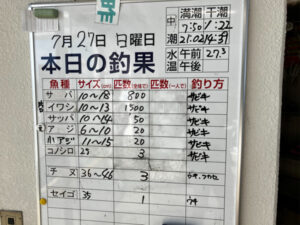 7月27日 日曜日
本日の釣果
中潮
満潮 干潮
7:50 1:22
21:02 14:39
水温 午前 27.3
午後
魚種 サイズ(cm) 匹数(全体で) 匹数(一人で) 釣り方
サバ 10~18 800 サビキ
イワシ 10~13 1500 サビキ
サッパ 10~14 50 サビキ
アジ 6~10 20 サビキ
小アジ 11~15 20 サビキ
コノシロ 25 3 サビキ
チヌ 36~46 3
セイゴ 35 1 ウキ